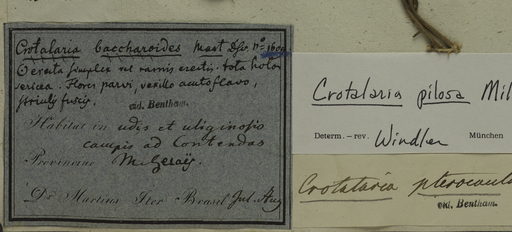 Crotalaria baccharoides Mart Hb. nº 1609
erecta simplex vel ramis erectis. tota holo
sericea. Flores parvi, vexillo
striis fuscis.
vid. Bentham.
Habitat in udis et uliginosis
campis ad Contendas
Provinciae M. Geraës.
Dr. Martius Iter Brasil Jul. Aug
Crotalaria pilosa Mil
Determ. – rev. Windler München
Crotalaria pterocaula
vid. Bentham.